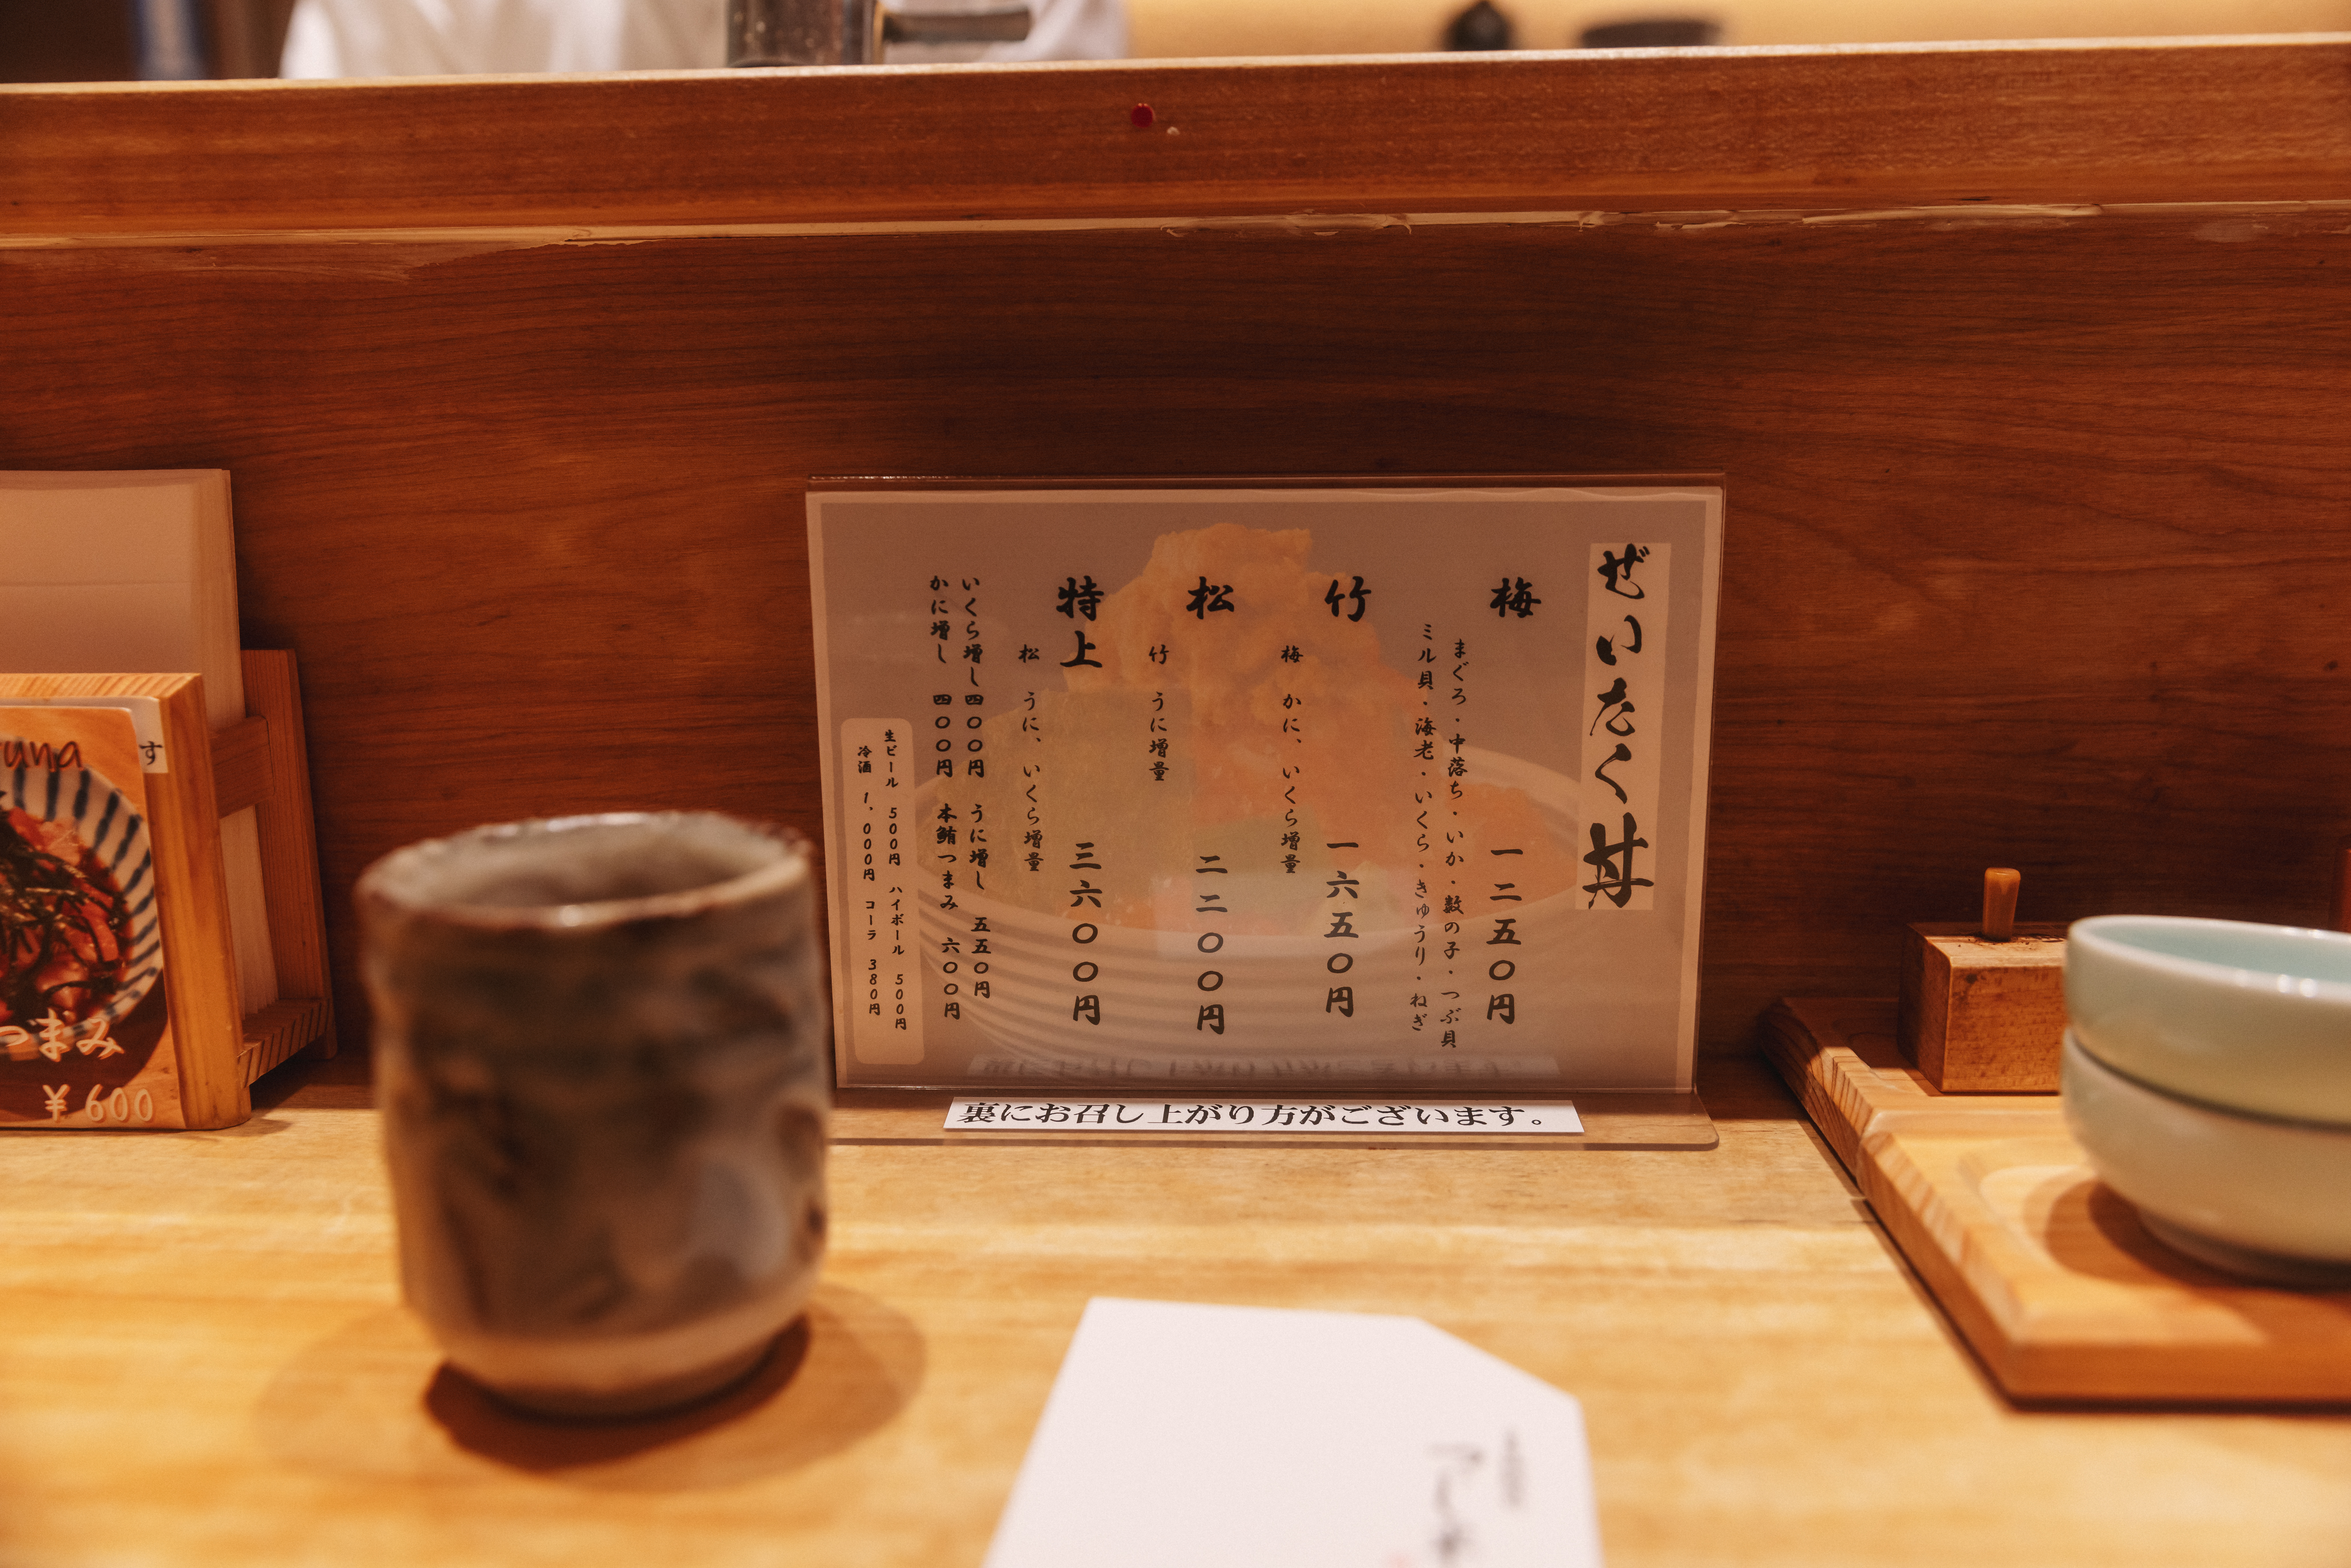 ぜいたく丼
梅 一二五〇円
まぐろ・中落ち・いか・数の子・つぶ貝
ミル貝・海老・いくら・きゅうり・ねぎ
竹 一六五〇円
梅 かに、いくら増量
松 二二〇〇円
竹 うに増量
特上 三六〇〇円
松 うに、いくら増量
いくら増し 四〇〇円 うに増し 五五〇円
かに増し 四〇〇円 本鮪つまみ 六〇〇円
生ビール 500円 ハイボール 500円
冷酒 1,000円 コーラ 380円
裏にお召し上がり方がございます。
す
つまみ
¥600